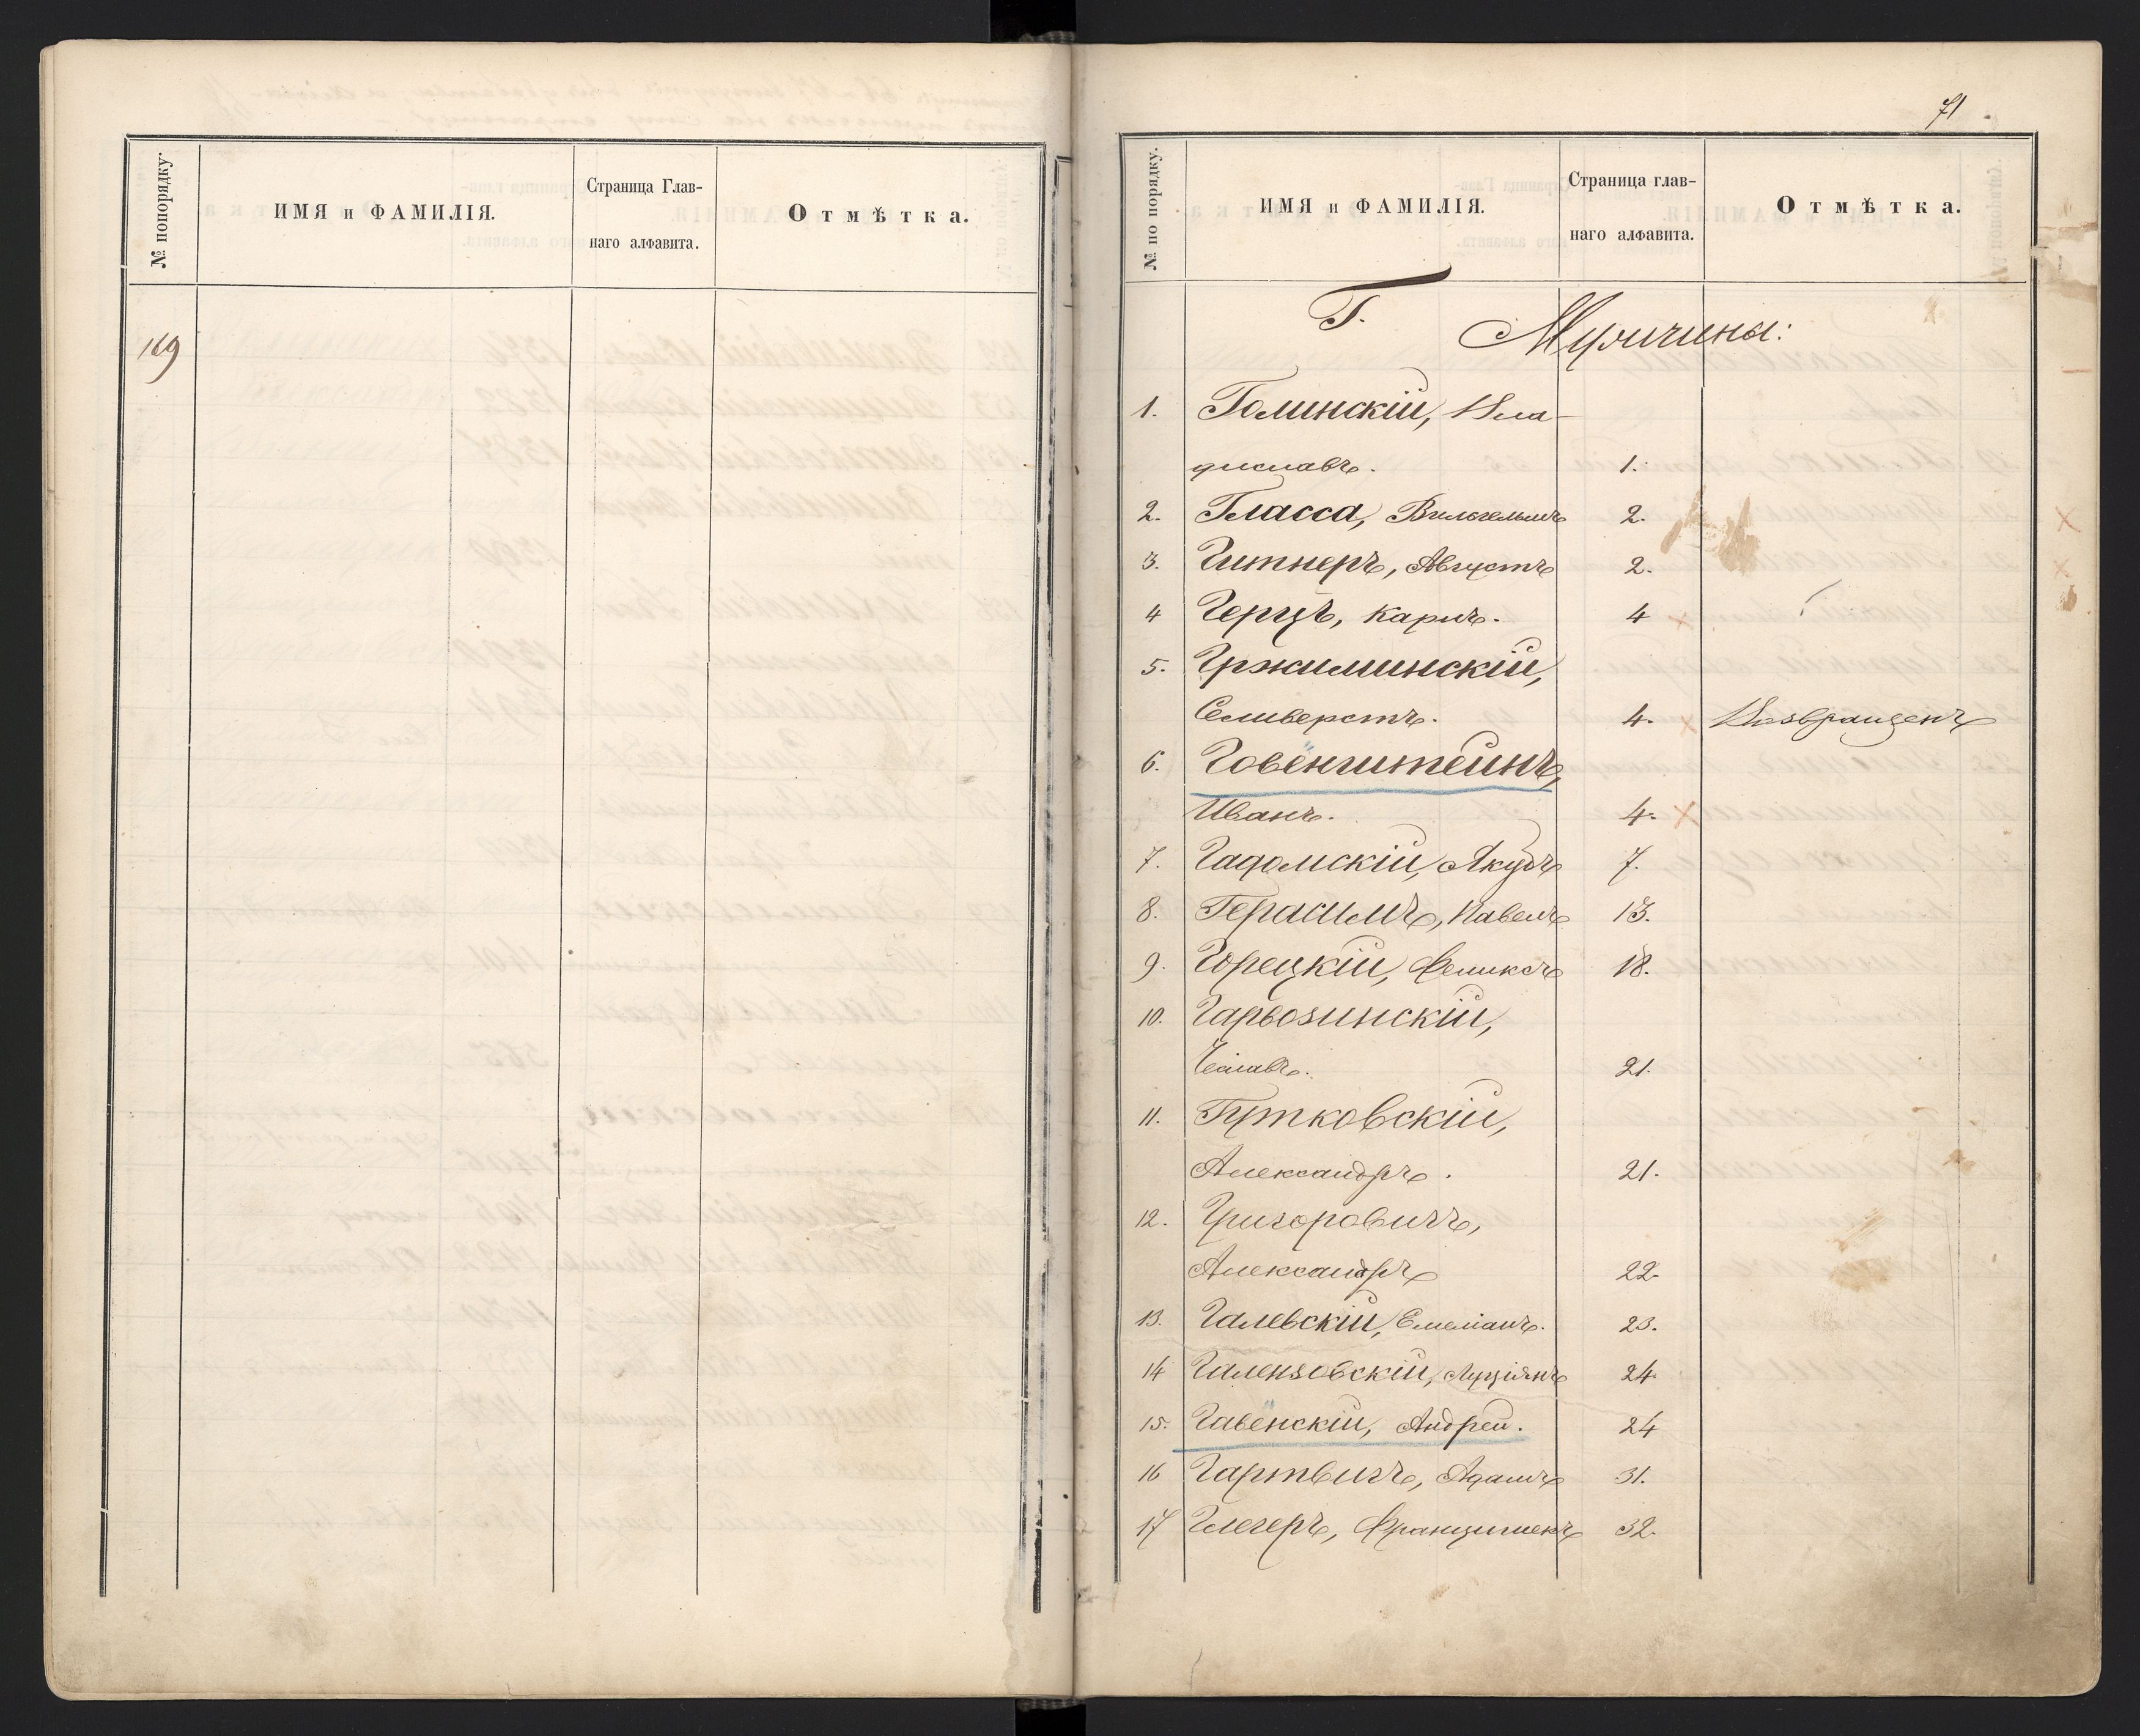 № попорядку.
ИМЯ и ФАМИЛІЯ.
Страница Глав-
наго алфавита.
Отмѣтка.
169
71
№ по порядку.
ИМЯ и ФАМИЛІЯ.
Страница глав-
наго алфавита.
Отмѣтка.
Г.
Мужчины:
1. Голинскій, Вла-
диславъ. 1.
2. Гласса, Вильгельмъ 2.
3. Гитнеръ, Августъ 2.
4 Герцъ, Карлъ. 4
5. Гржилинскій,
Селиверстъ. 4. Возвращенъ
6. Говёнштейнъ,
Иванъ. 4.
7. Гадомскій, Якубъ 7.
8. Герасимъ, Павелъ 13.
9. Горецкій, Феликсъ 18.
10. Гарвозинскій,
21.
11. Гутковскій,
Александръ. 21.
12. Григоровичъ,
Александръ 22.
13. Галевскій, Емеліанъ. 23.
14 Галензовскій, Луціянъ 24
15. Гавёнскій, Андрей. 24
16 Гартвигъ, Адамъ 31.
17 Глегеръ, Францишекъ 32.